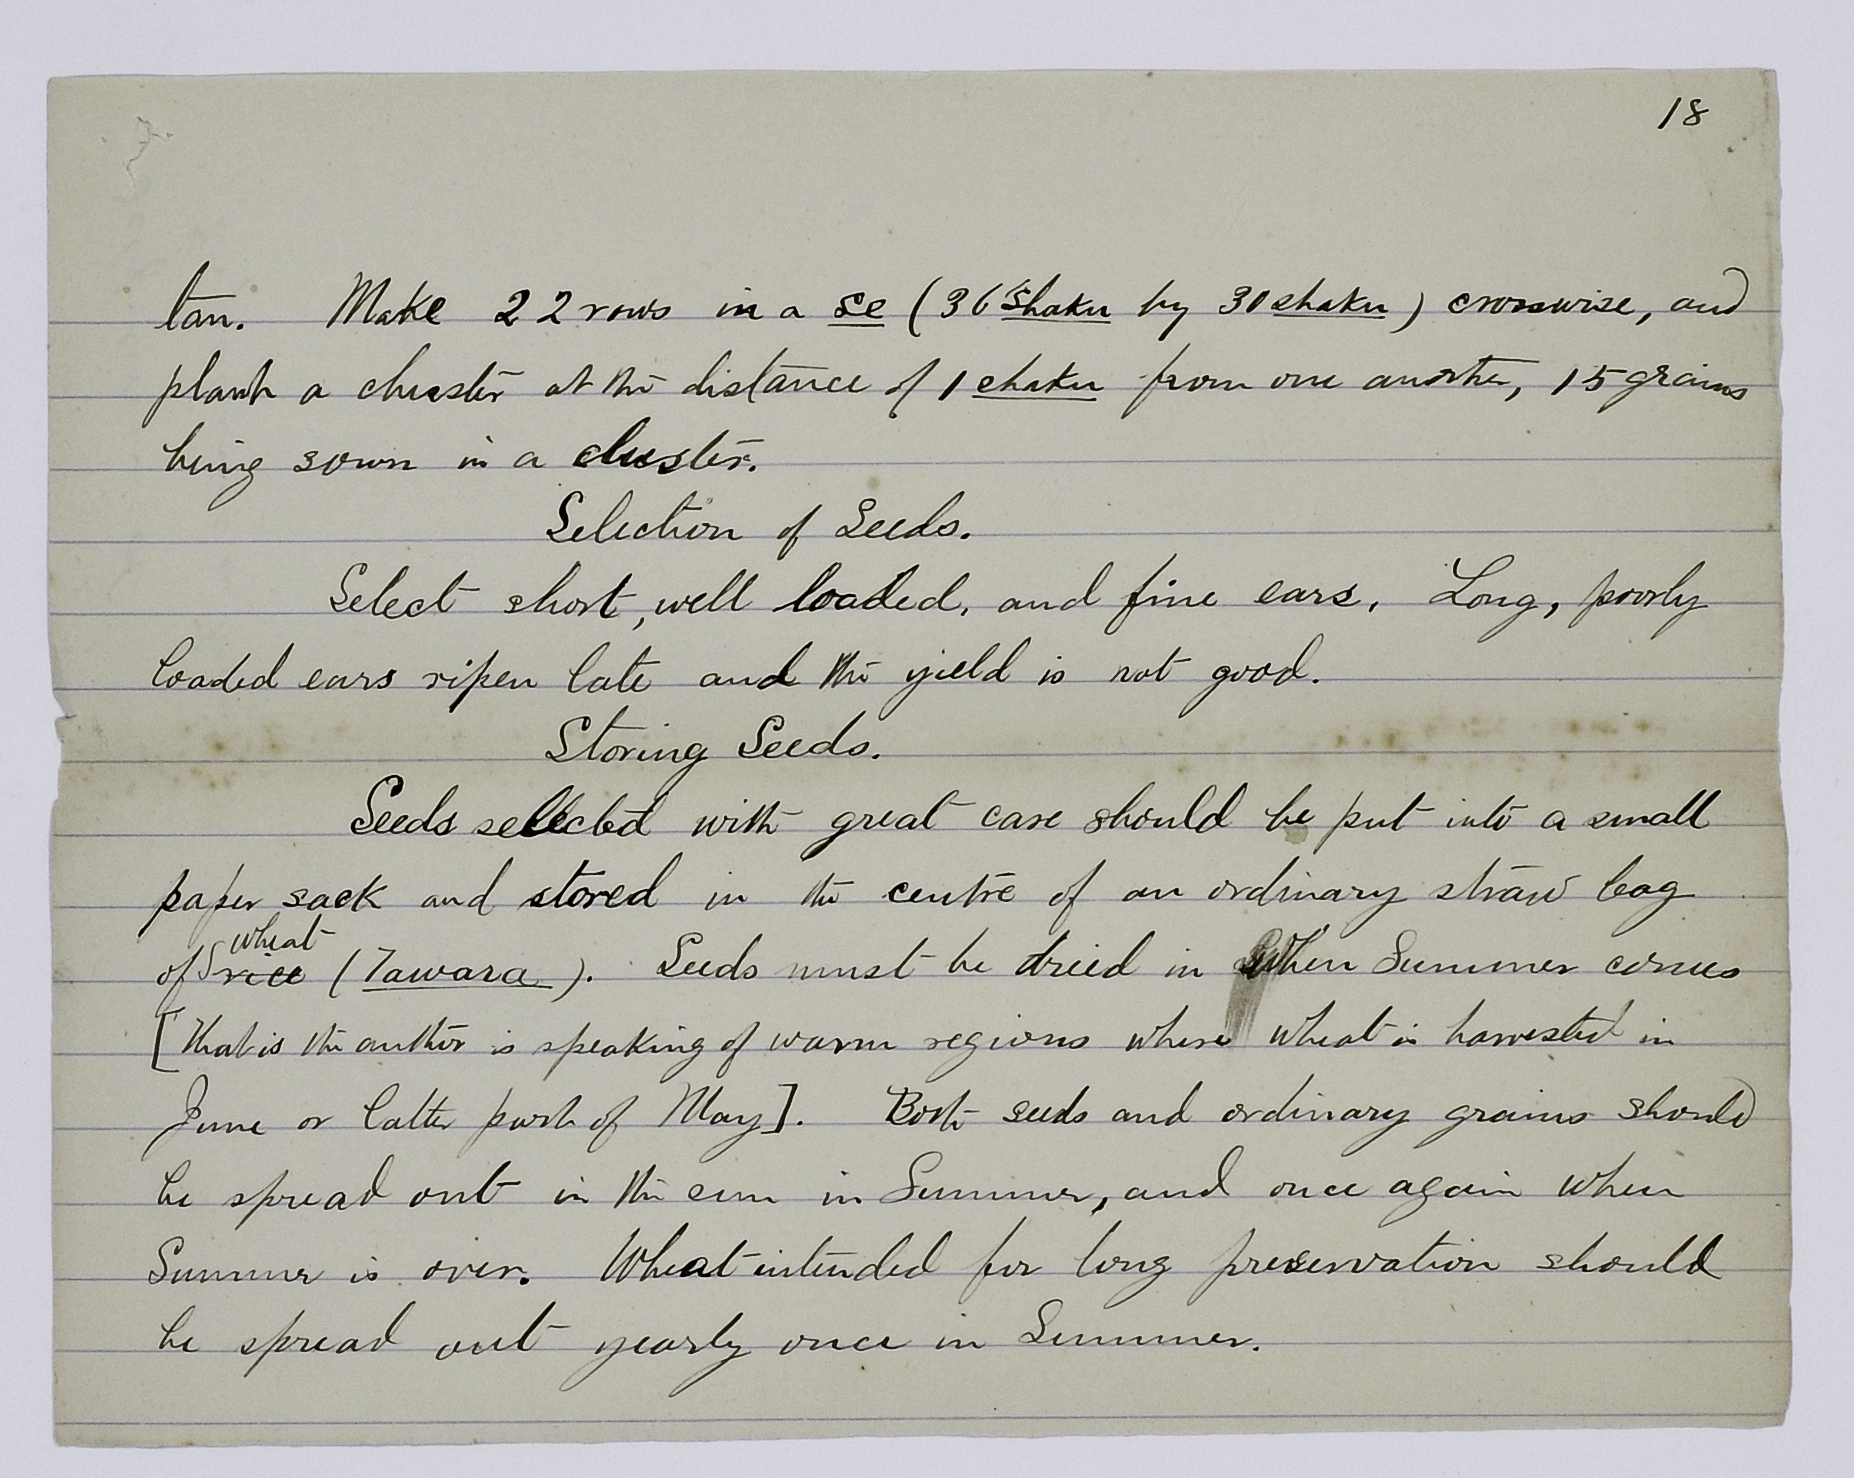 18
tan. Make 22 rows in a se (36 shaku by 30 shaku) crosswise, and
plant a cluster at the distance of 1 shaku from one another, 15 grains
being sown in a cluster.
Selection of Seeds.
Select short, well loaded, and fine ears. Long, poorly
loaded ears ripen late and the yield is not good.
Storing Seeds.
Seeds selected with great care should be put into a small
paper sack and stored in the centre of an ordinary straw bag
wheat
of rice (Tawara). Seeds must be dried in When Summer comes
[that is the author is speaking of warm regions where wheat is harvested in
June or latter part of May]. Both seeds and ordinary grains should
be spread out in the sun in Summer, and once again when
Summer is over. Wheat intended for long preservation should
be spread out yearly once in Summer.